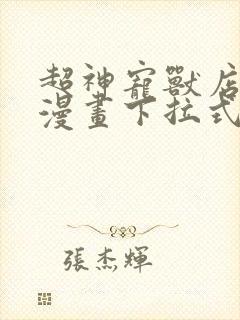 超神寵獸店
漫畫下拉式
張杰輝